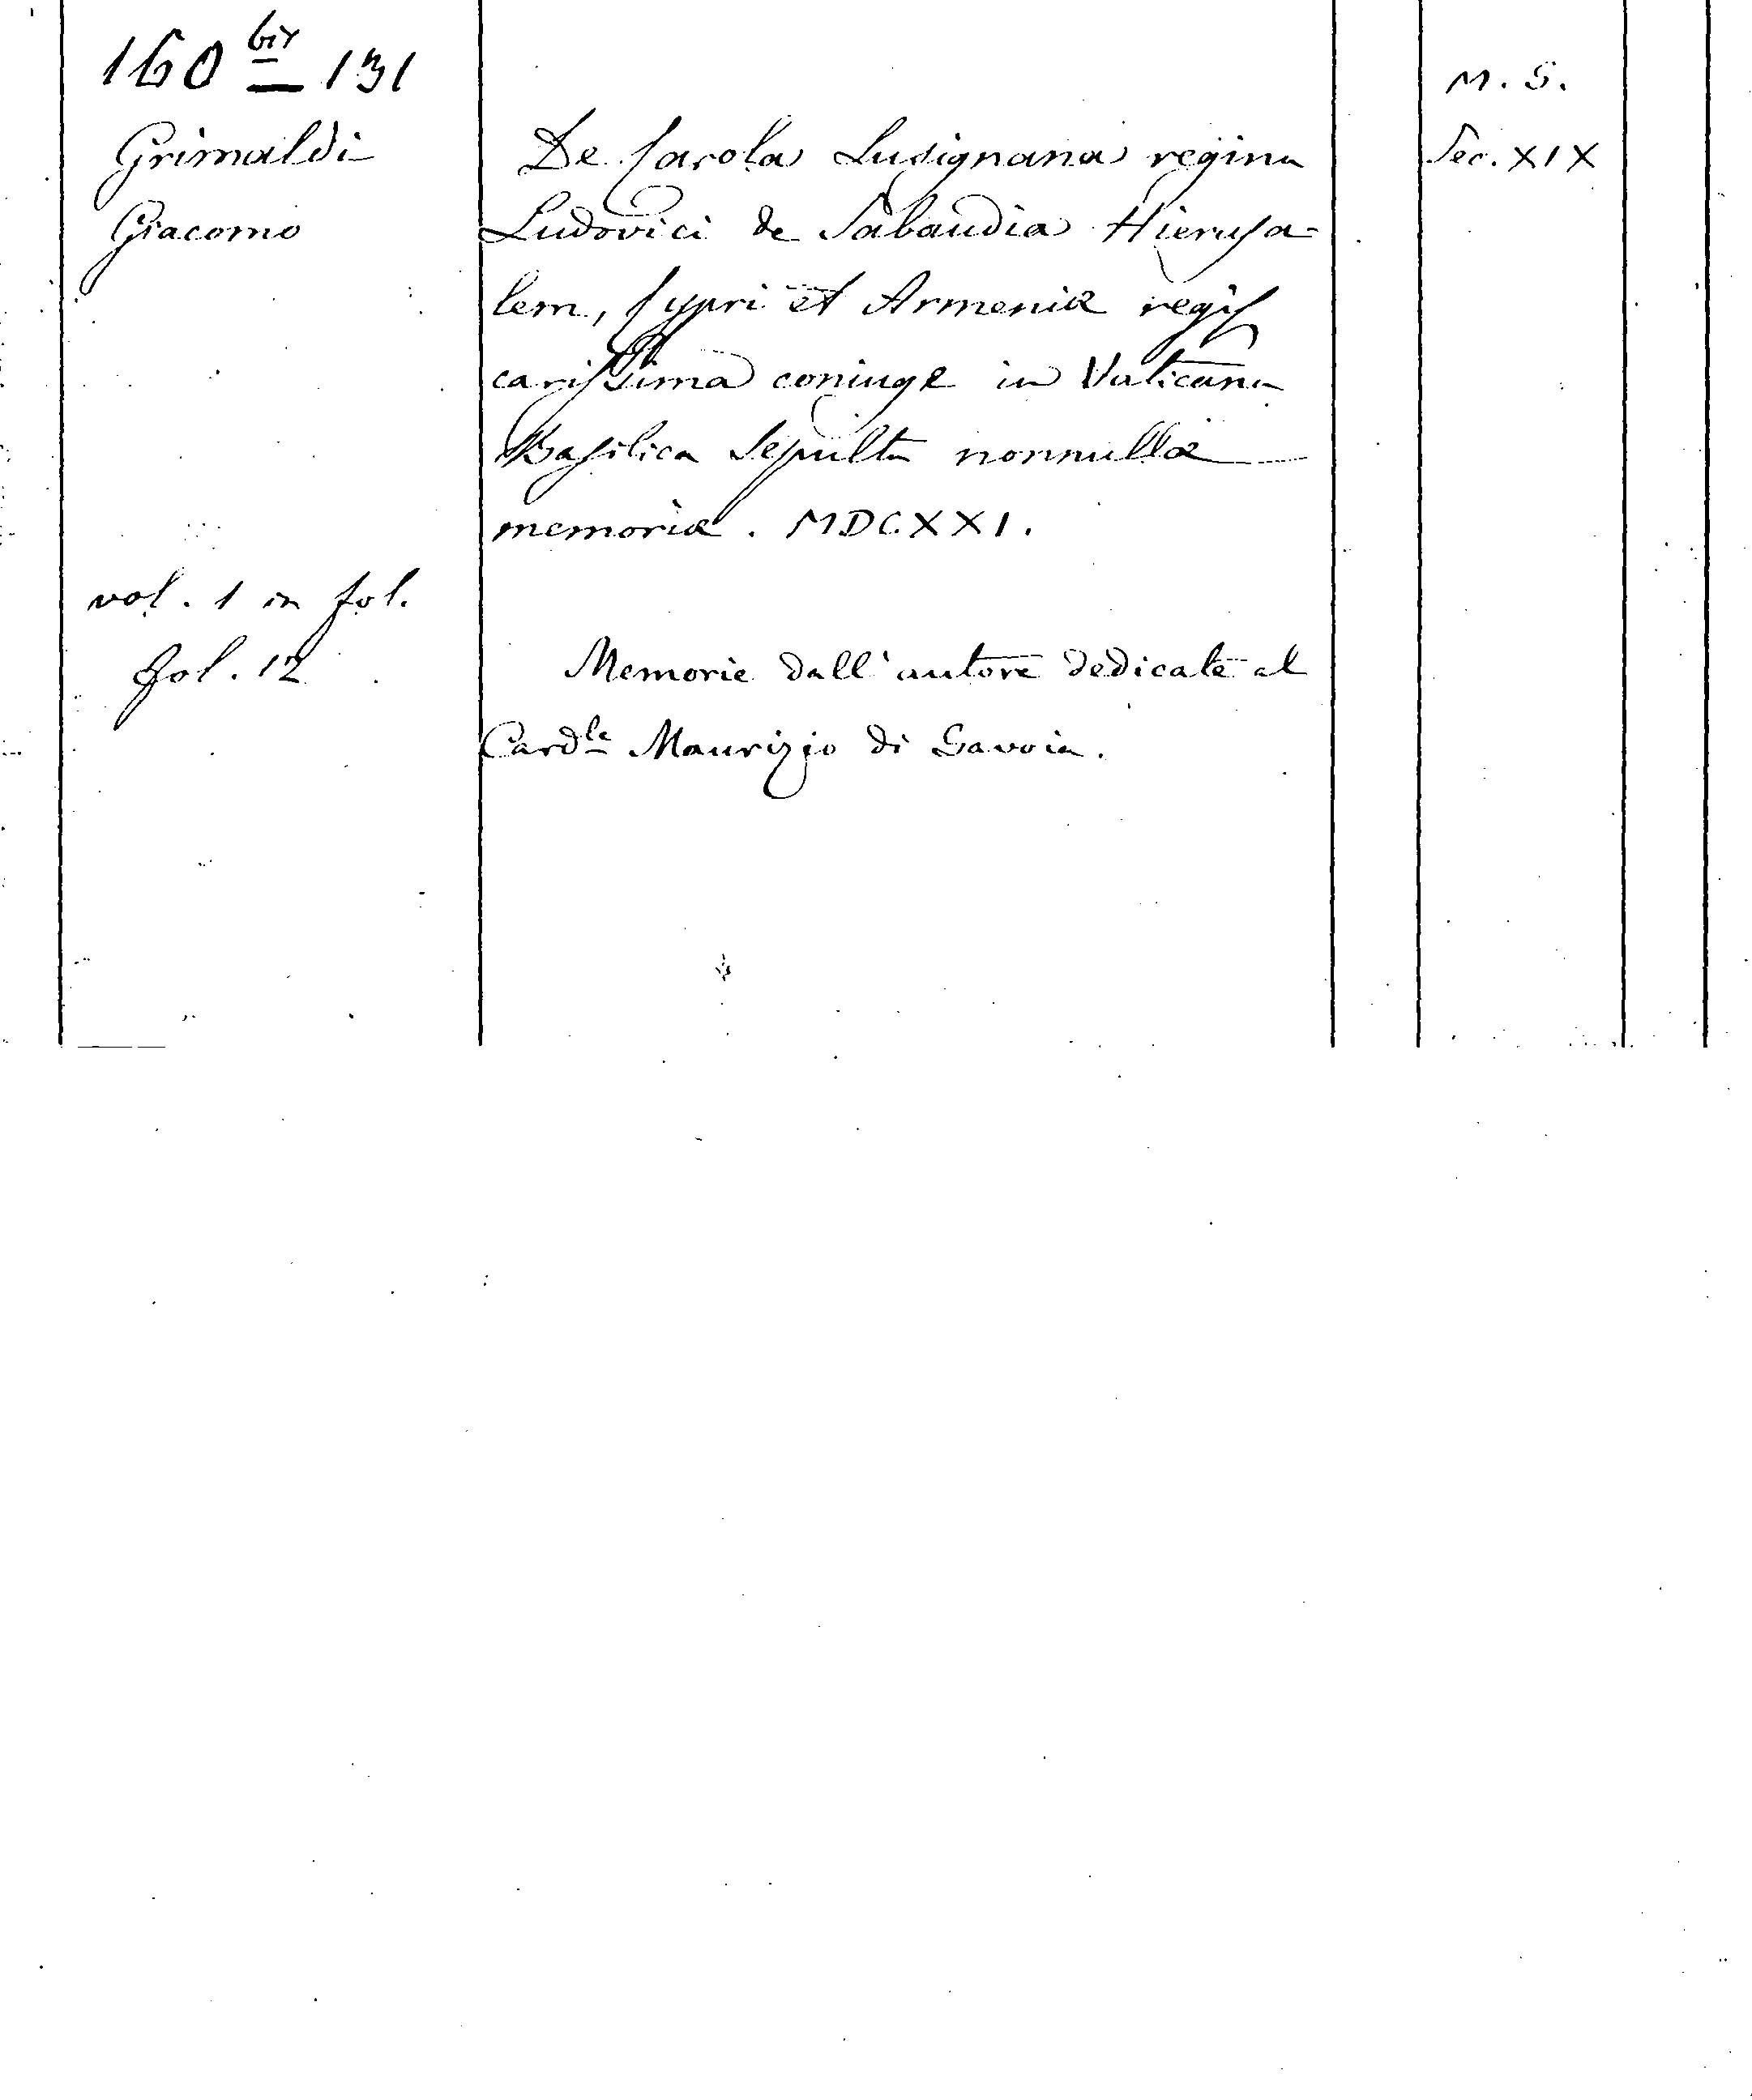 160 bis — 131
Grimaldi
Giacomo
vol. 1 in fol.
fol. 12
De Carola Lusignana regina
Ludovici de Sabaudia Hierusa-
lem, Cypri et Armeniæ regis
carissima coniuge in Vaticana
Basilica Sepulta nonnullæ
memoriæ. MDCXXI.
Memorie dall'autore dedicate al
Card.le Maurizio di Savoia.
M. S.
Sec. XIX